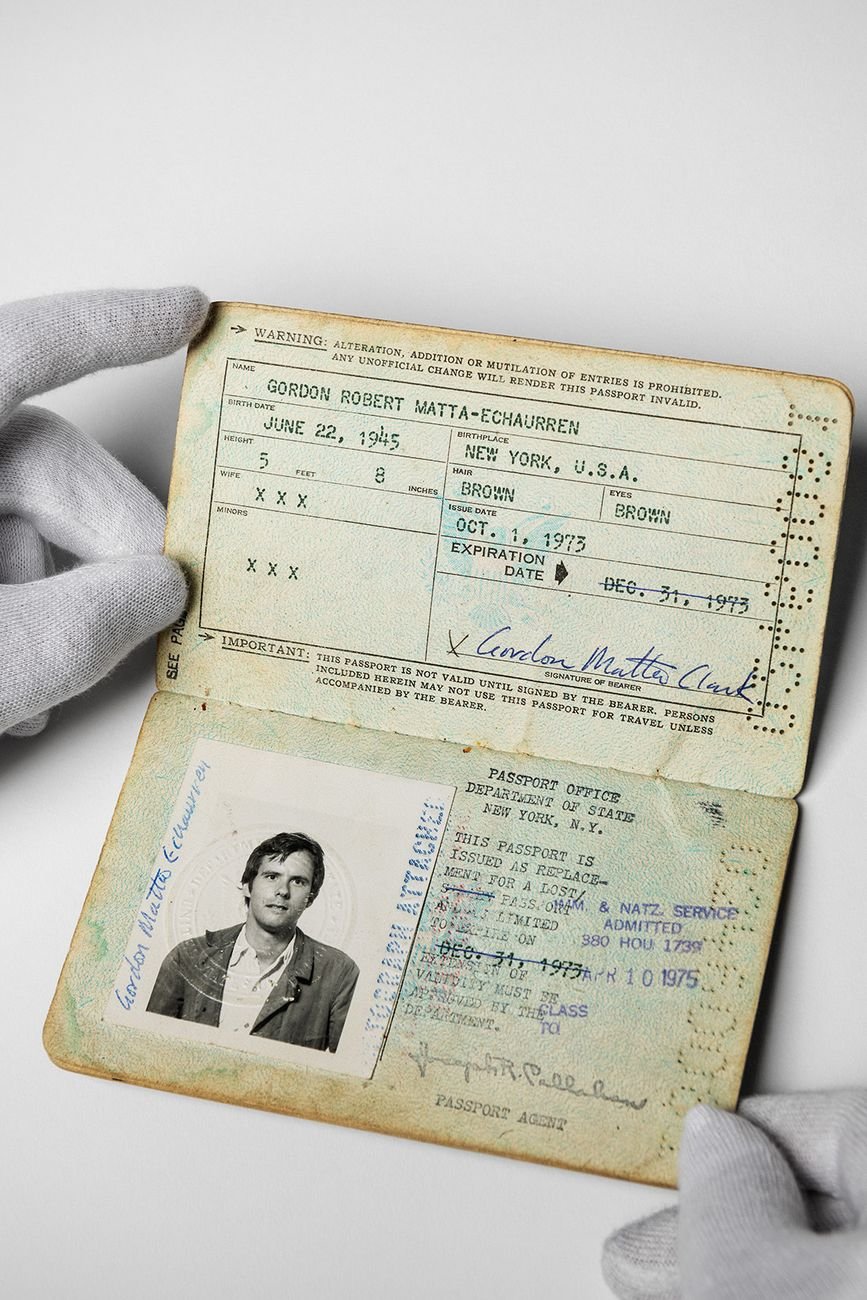 WARNING: ALTERATION, ADDITION OR MUTILATION OF ENTRIES IS PROHIBITED.
ANY UNOFFICIAL CHANGE WILL RENDER THIS PASSPORT INVALID.
NAME
GORDON ROBERT MATTA-ECHAURREN
BIRTH DATE
JUNE 22, 1945
BIRTHPLACE
NEW YORK, U.S.A.
HEIGHT
5 FEET 8 INCHES
HAIR
BROWN
EYES
BROWN
WIFE
X X X
ISSUE DATE
OCT. 1, 1973
MINORS
X X X
EXPIRATION
DATE
DEC. 31, 1973
X Gordon Matta Clark
SIGNATURE OF BEARER
SEE PAG
IMPORTANT: THIS PASSPORT IS NOT VALID UNTIL SIGNED BY THE BEARER. PERSONS
INCLUDED HEREIN MAY NOT USE THIS PASSPORT FOR TRAVEL UNLESS
ACCOMPANIED BY THE BEARER.
Gordon Matta Echaurren
PASSPORT OFFICE
DEPARTMENT OF STATE
NEW YORK, N.Y.
THIS PASSPORT IS
ISSUED AS REPLACE-
MENT FOR A LOST/
PASSPORT
LIMITED
TO EXPIRE ON
DEC. 31, 1973
EXTENSION OF
VALIDITY MUST BE
APPROVED BY THE
DEPARTMENT.
IMM. & NATZ. SERVICE
ADMITTED
380 HOU 1739
APR 10 1975
CLASS
TO
Joseph R. Callahan
PASSPORT AGENT